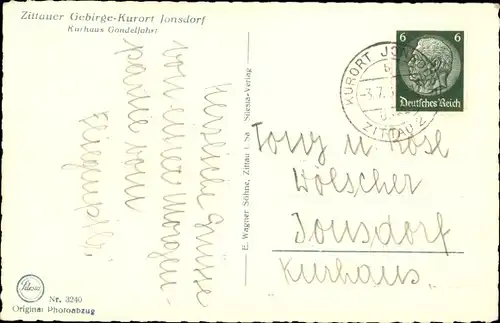 Zittauer Gebirge-Kurort Jonsdorf
Kurhaus Gondelfahrt
Herzliche Grüsse
von einer Morgen-
partie vom
E. Wagner Söhne, Zittau i. Sa. Silesia-Verlag
6 6
Deutsches Reich
KURORT
-3.7.
ZITTAU 2
Tony u. Rose
Wölscher
Jonsdorf
Kurhaus
Silesia
Nr. 3240
Original Photoabzug